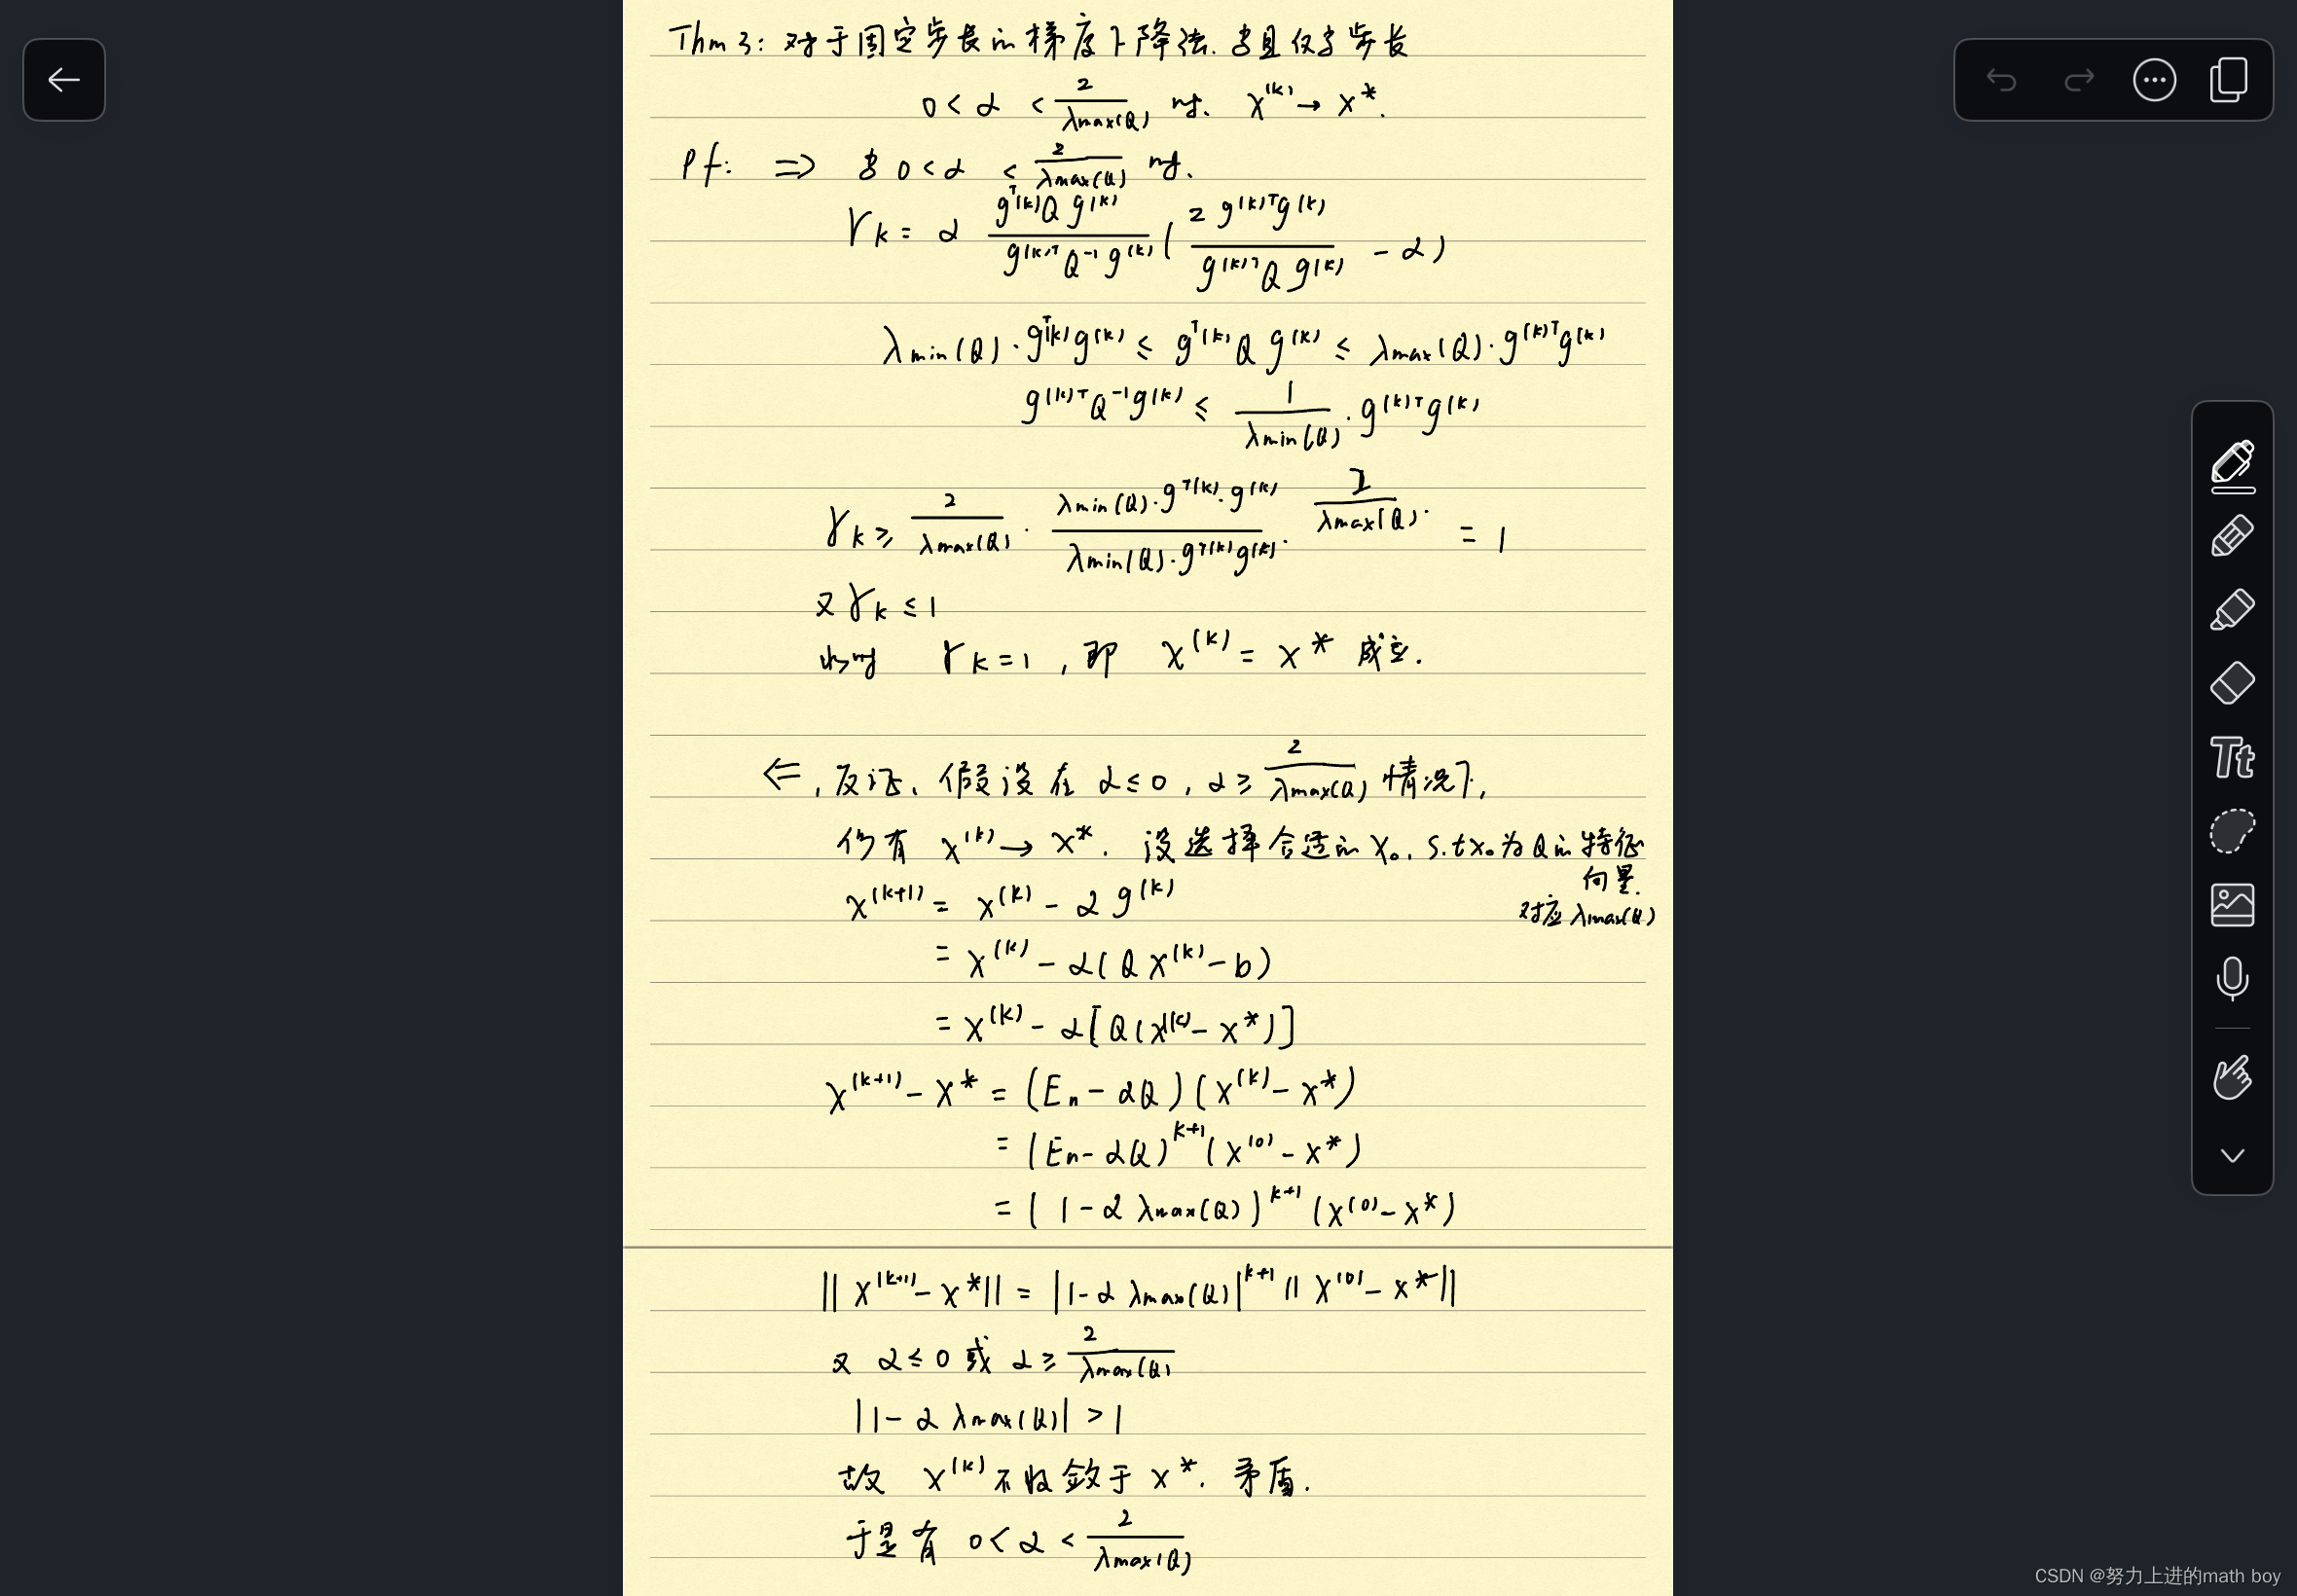 Thm 3: 对于固定步长的梯度下降法. 当且仅当步长
0 < α < 2/λmax(Q) 时. x^(k) → x*.
Pf: ⇒ 当 0 < α < 2/λmax(Q) 时.
γk = α (g^T(k) Q g^(k))/(g^(k)T Q^-1 g^(k)) ( (2 g^(k)T g^(k))/(g^(k)T Q g^(k)) - α )
λmin(Q) · g^T(k) g^(k) ≤ g^T(k) Q g^(k) ≤ λmax(Q) · g^(k)T g^(k)
g^(k)T Q^-1 g^(k) ≤ 1/λmin(Q) · g^(k)T g^(k)
γk ≥ 2/λmax(Q) · (λmin(Q) · g^T(k) · g^(k))/(λmin(Q) · g^T(k) g^(k)) · /λmax(Q) · = 1
又 γk ≤ 1
γk = 1, 即 x^(k) = x* 成立.
⇐, 反证, 假设在 α ≤ 0, α ≥ 2/λmax(Q) 情况下,
仍有 x^(k) → x*. 设选择合适的 x0, s.t x0 为 Q 的特征
向量.
对应 λmax(Q)
x^(k+1) = x^(k) - α g^(k)
= x^(k) - α(Q x^(k) - b)
= x^(k) - α[Q(x^(k) - x*)]
x^(k+1) - x* = (En - αQ)(x^(k) - x*)
= (En - αQ)^k+1 (x^(0) - x*)
= (1 - α λmax(Q))^k+1 (x^(0) - x*)
||x^(k+1) - x*|| = |1 - α λmax(Q)|^k+1 ||x^(0) - x*||
又 α ≤ 0 或 α ≥ 2/λmax(Q)
|1 - α λmax(Q)| > 1
故 x^(k) 不收敛于 x*. 矛盾.
于是有 0 < α < 2/λmax(Q)
Tt
CSDN @努力上进的math boy